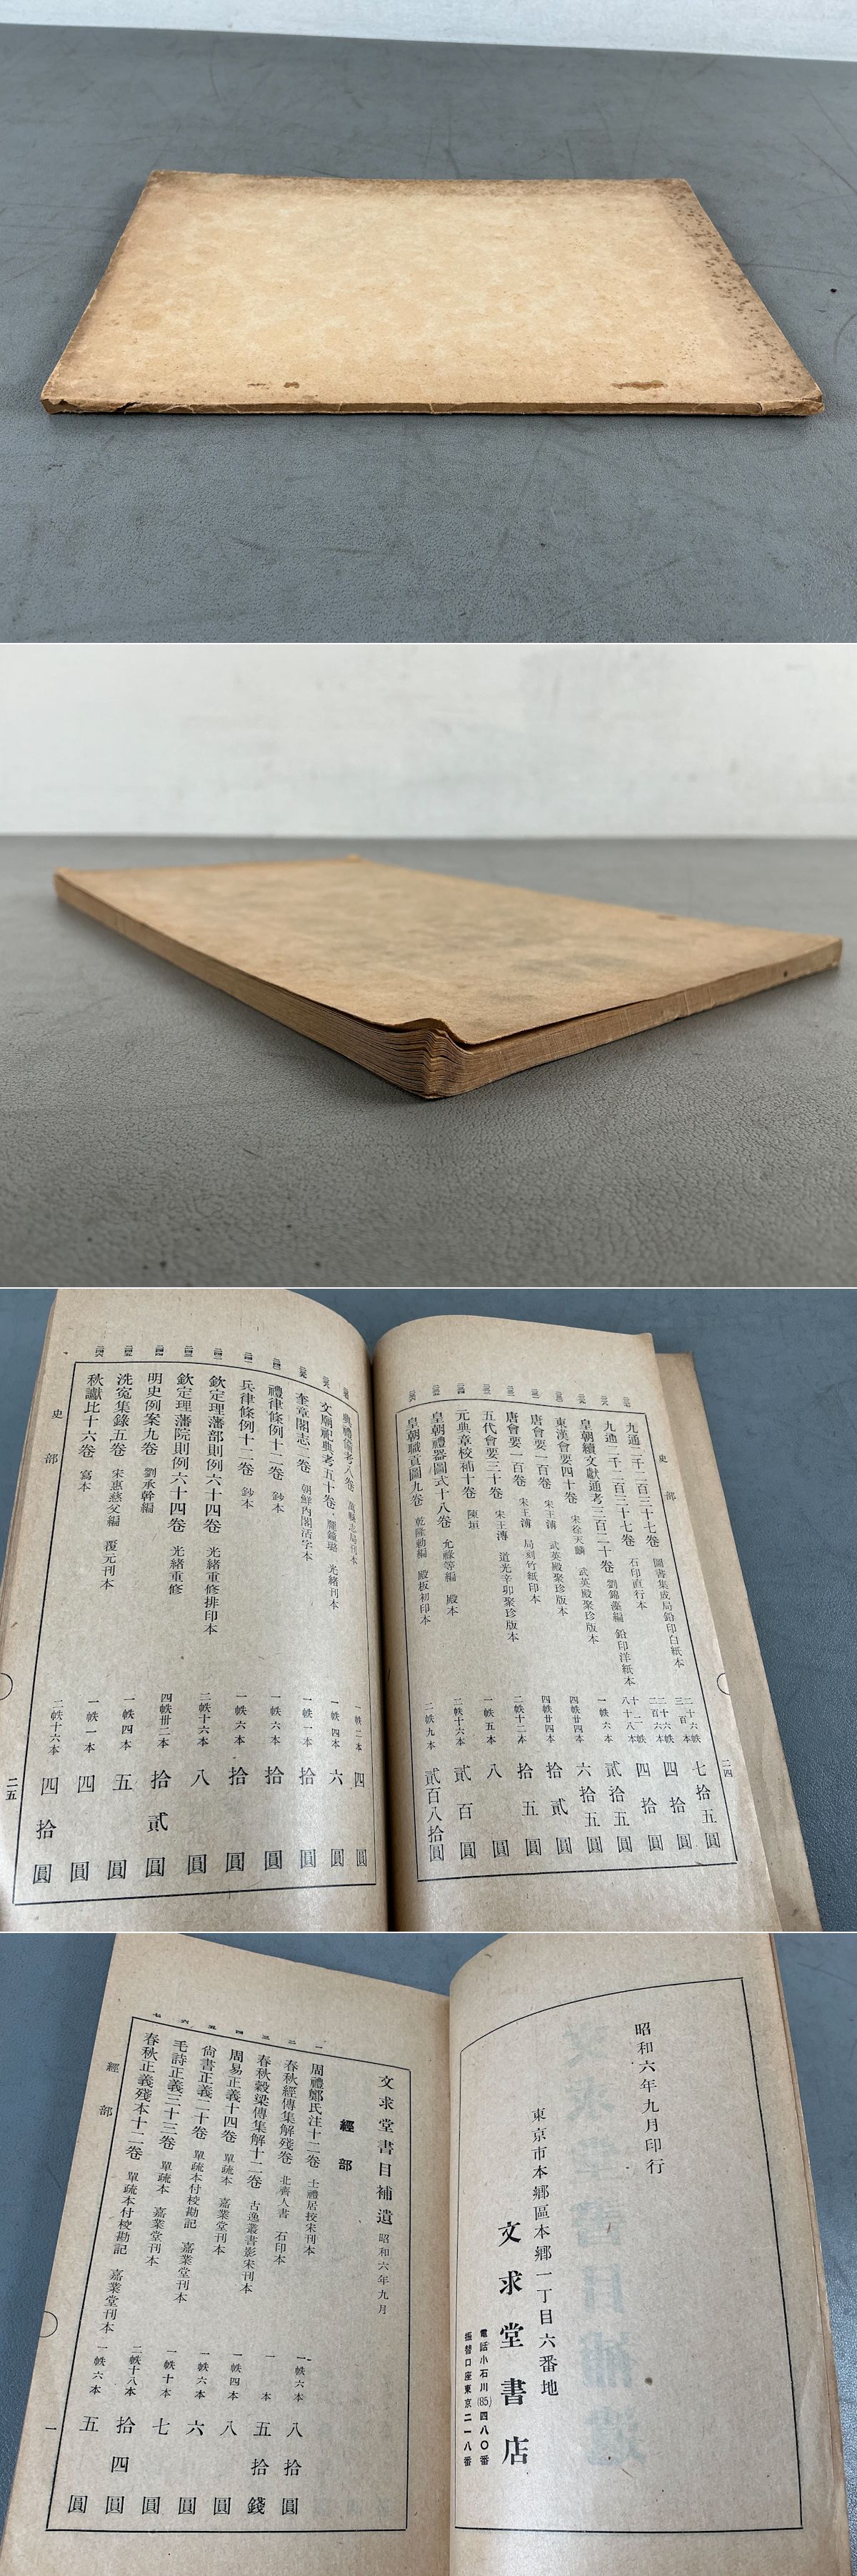 史部
九通二千三百三十七卷 圖書集成局鉛印白紙本 七拾五圓
九通二千三百三十七卷 石印直行本 四拾圓
皇朝續文獻通考三百二十卷 劉錦藻編 鉛印洋紙本 四拾圓
東漢會要四十卷 宋徐天麟 武英殿聚珍版本 一帙六本 貳拾五圓
唐會要一百卷 宋王溥 武英殿聚珍版本 四帙廿四本 六拾五圓
唐會要一百卷 宋王溥 局刻竹紙印本 四帙廿四本 拾貳圓
五代會要三十卷 宋王溥 道光辛卯聚珍版本 二帙十二本 拾五圓
元典章校補十卷 陳垣 一帙五本 八圓
皇朝禮器圖式十八卷 允祿等編 殿本 貳百圓
皇朝職貢圖九卷 乾隆勅編 殿板初印本 二帙九本 貳百八拾圓
二四
典禮備考八卷 萬縣志局刊本 一帙二本 四圓
文廟祀典考五十卷 龐鐘璐 光緒刊本 一帙四本 六圓
奎章閣志二卷 朝鮮內閣活字本 一帙一本 拾圓
禮律條例十二卷 鈔本 一帙六本 拾圓
兵律條例十二卷 鈔本 一帙六本 拾圓
欽定理藩部則例六十四卷 光緒重修排印本 二帙十六本 八圓
欽定理藩院則例六十四卷 光緒重修 四帙卅二本 拾貳圓
明史例案九卷 劉承幹編 一帙四本 五圓
洗冤集錄五卷 宋惠慈父編 覆元刊本 一帙一本 四圓
秋讞比十六卷 寫本 二帙十六本 四拾圓
史部
二五
昭和六年九月印行
東京市本鄉區本鄉一丁目六番地
文求堂書店
電話小石川(85)四八〇番
振替口座東京二一八番
文求堂書目補遺 昭和六年九月
經部
一
周禮鄭氏注十二卷 士禮居校宋刊本 一帙六本 八拾圓
二
春秋經傳集解殘卷 北齊人書 石印本 一本 五拾錢
三
春秋穀梁傳集解十二卷 古逸叢書影宋刊本 一帙四本 八圓
四
周易正義十四卷 單疏本 嘉業堂刊本 一帙六本 六圓
五
尙書正義二十卷 單疏本付校勘記 嘉業堂刊本 一帙十本 七圓
六
毛詩正義三十三卷 單疏本 嘉業堂刊本 二帙十八本 拾四圓
七
春秋正義殘本十二卷 單疏本付校勘記 嘉業堂刊本 一帙六本 五圓
經部
一